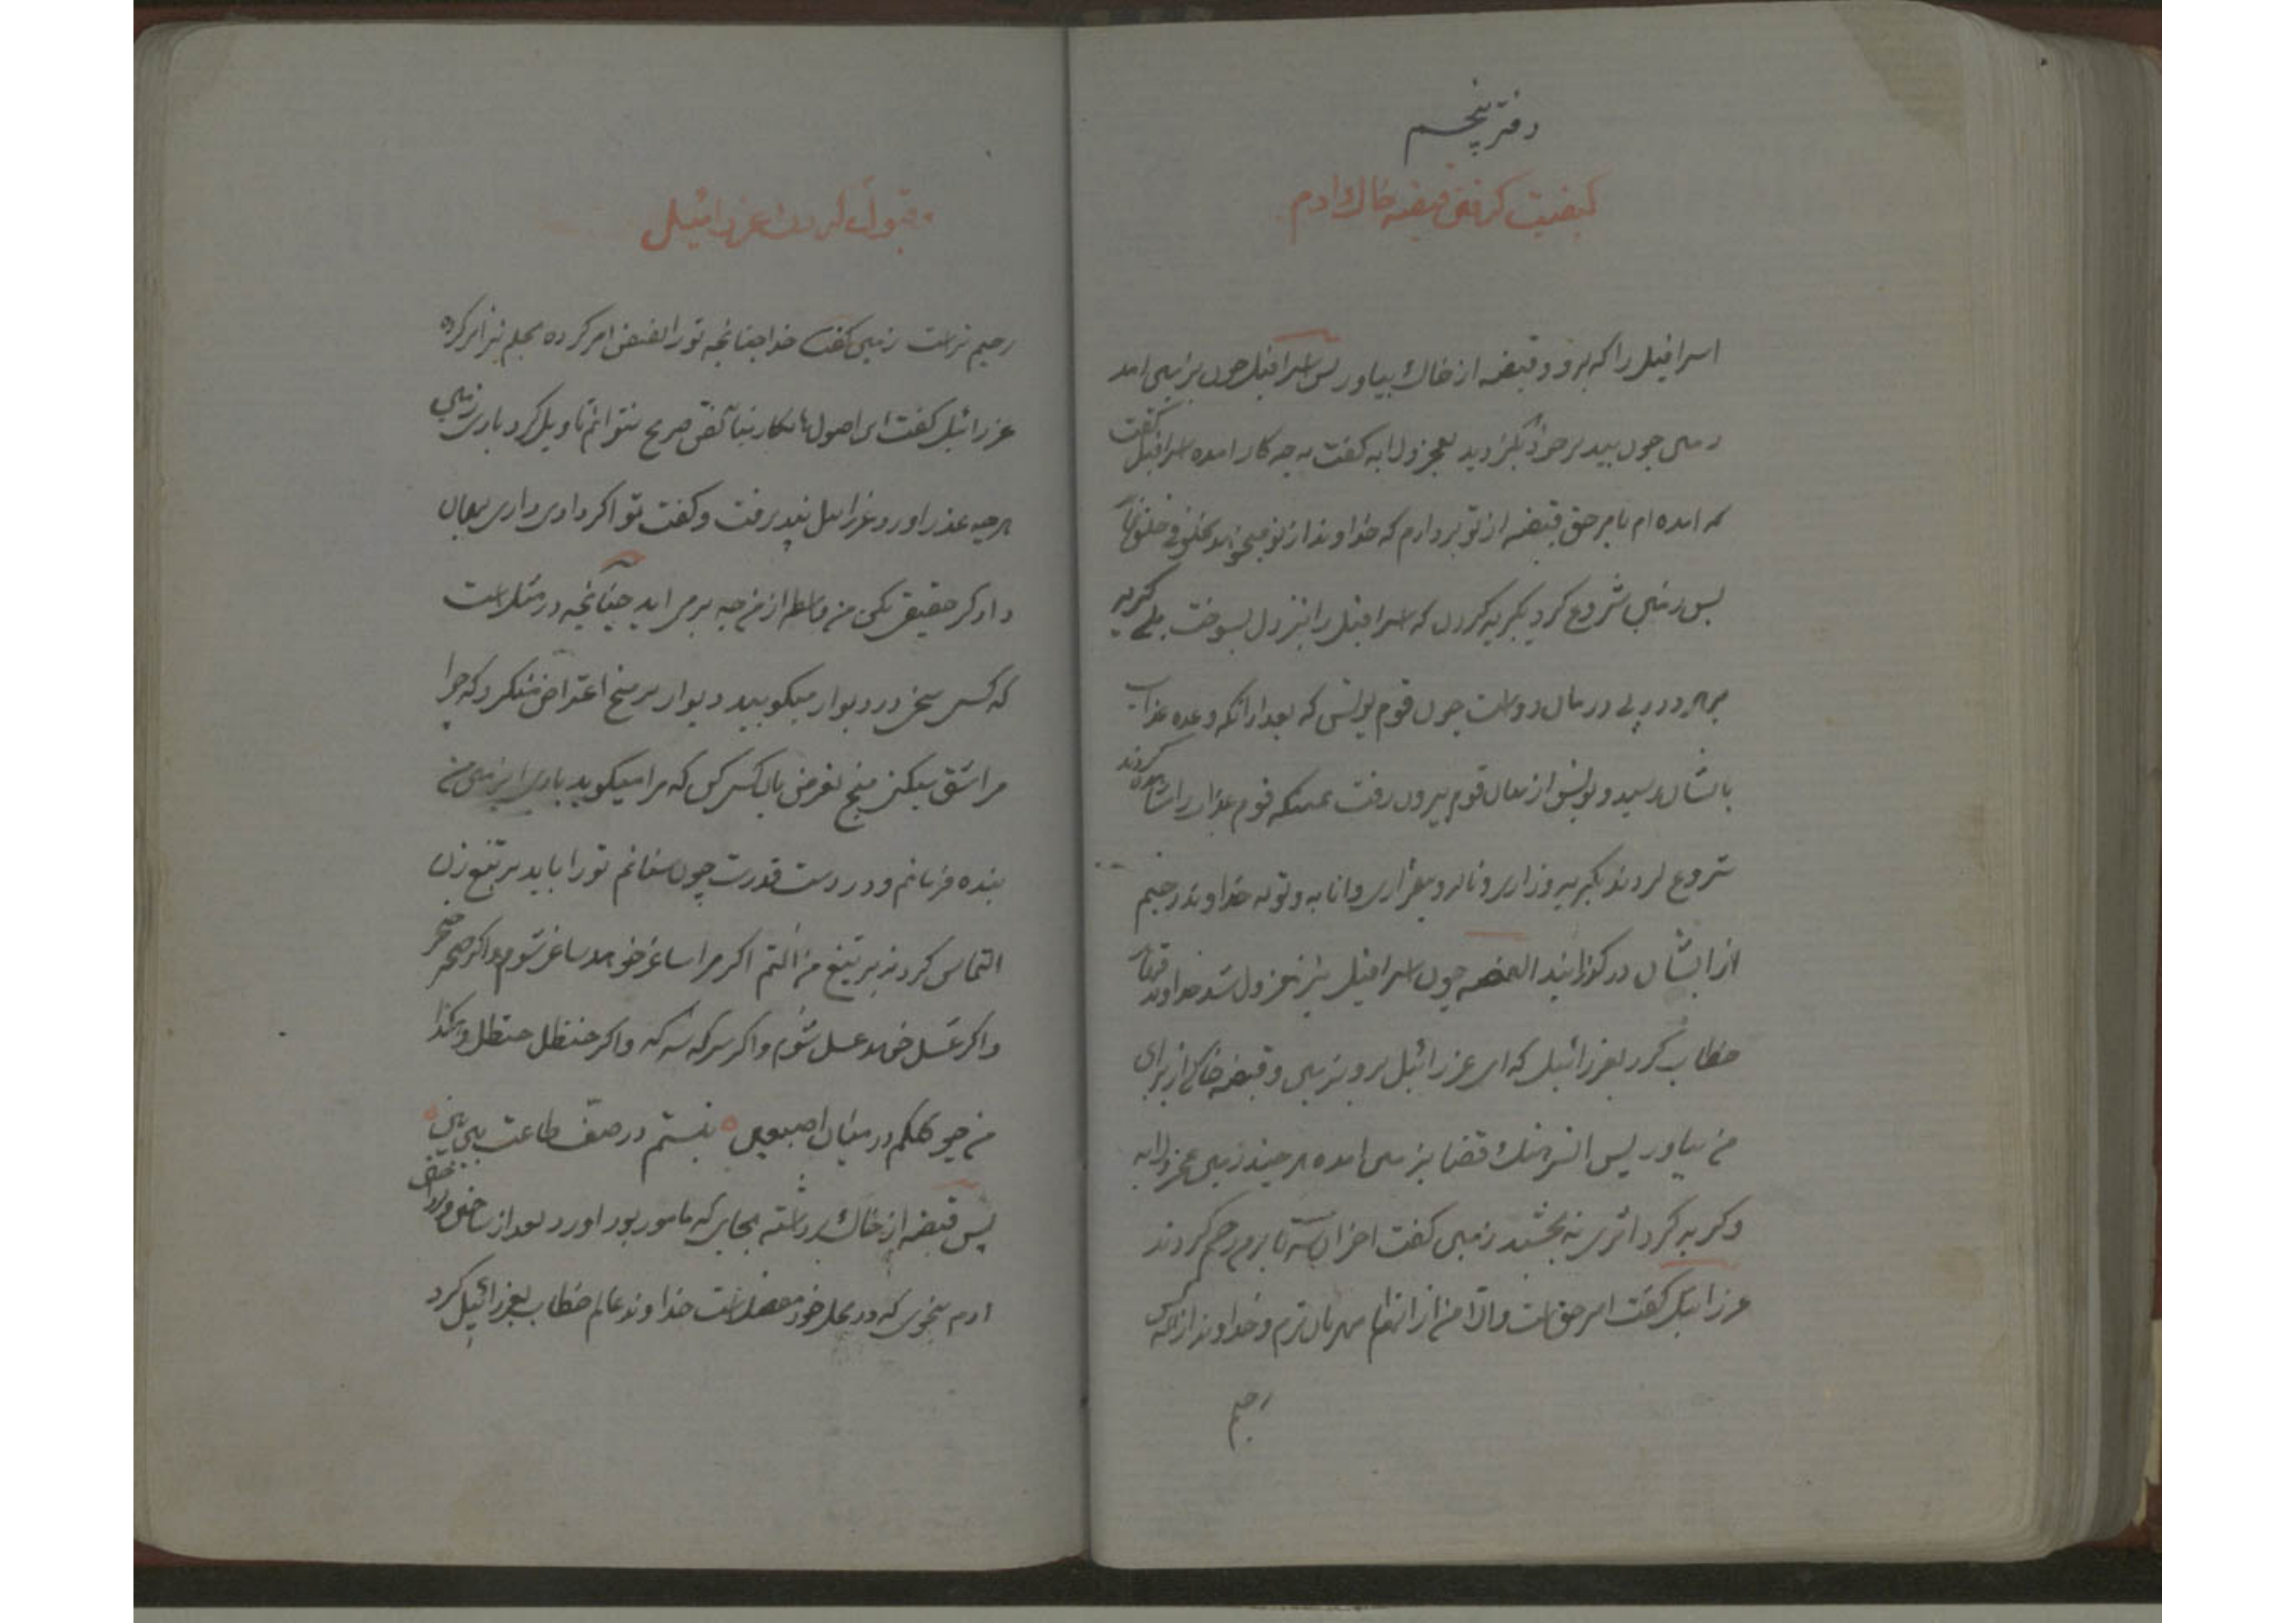 دفتر پنجم
کیفیت گرفتن قبضه خاک ادم
اسرافیل را که برو و قبضه از خاک بیاور پس اسرافیل چون بزمین امد
زمین چون بید بر خود بلرزید بعجز و لابه گفت به چه کار امده اسرافیل گفت
که امده ام بامر حق قبضه از تو بردارم که خداوند از تو میخواهد
پس زمین شروع کرد بگریه کردن که اسرافیل را نیز دل بسوخت بلی گریه
بر هر درد بی درمان دواست چون قوم یونس که بعد از انکه وعده عذاب
بایشان رسید و یونس از میان قوم بیرون رفت قوم عذاب را
شروع کردند بگریه و زاری و ناله و بیقراری و انابه و توبه خداوند رحیم
از ایشان در گذرانید القصه چون اسرافیل نیز معزول شد خداوند
خطاب کرد بعزرائیل که ای عزرائیل برو بزمین و قبضه خاکی از برای
من بیاور پس ان سرهنگ قضا بزمین امده هر چند زمین عجز و لابه
و گریه کرد اثری نه بخشید زمین گفت اخر ان سه تا برم رحم کردند
عزرائیل گفت امر حق است والا من از انها مهربان ترم و خداوند از همه کس
رحیم
قبول کردن عزرائیل
رحیم تر است زمین گفت خدا چنانچه تو را بقبض امر کرده بحلم نیز امر کرده
عزرائیل گفت ای اصول ها بکار نیاید نص صریح نتوانم تاویل کرد باری زمین
هرچه عذر اورد عزرائیل نپذیرفت و گفت تو اگر دادی داری بهمان
دادگر حقیقی بکن من واسطه ام از من چه بر می اید چنانچه در مثل است
که کسی میخی در دیوار میکوبید دیوار بر میخ اعتراض میکرد که چرا
مرا شق میکنی میخ بعرض بان کس کن که مرا میکوبد باری ای زمین من
بنده فرمانم و در دست قدرت چون سفالم تو را باید بر تیغ زن
التماس کرد نه بر تیغ من التم اگر مرا ساغر خواهد ساغر شوم و اگر خنجر خنجر
و اگر عسل خواهد عسل شوم و اگر سرکه سرکه و اگر حنظل حنظل و هکذا
من چو کلکم در میان اصبعین نیستم در صف طاعت بین بین
پس قبضه از خاک برداشته بجایی که مامور بود اورد بعد از ساختن
ادم بنحوی که در محل خود مفصل است خداوند عالم خطاب بعزرائیل کرد